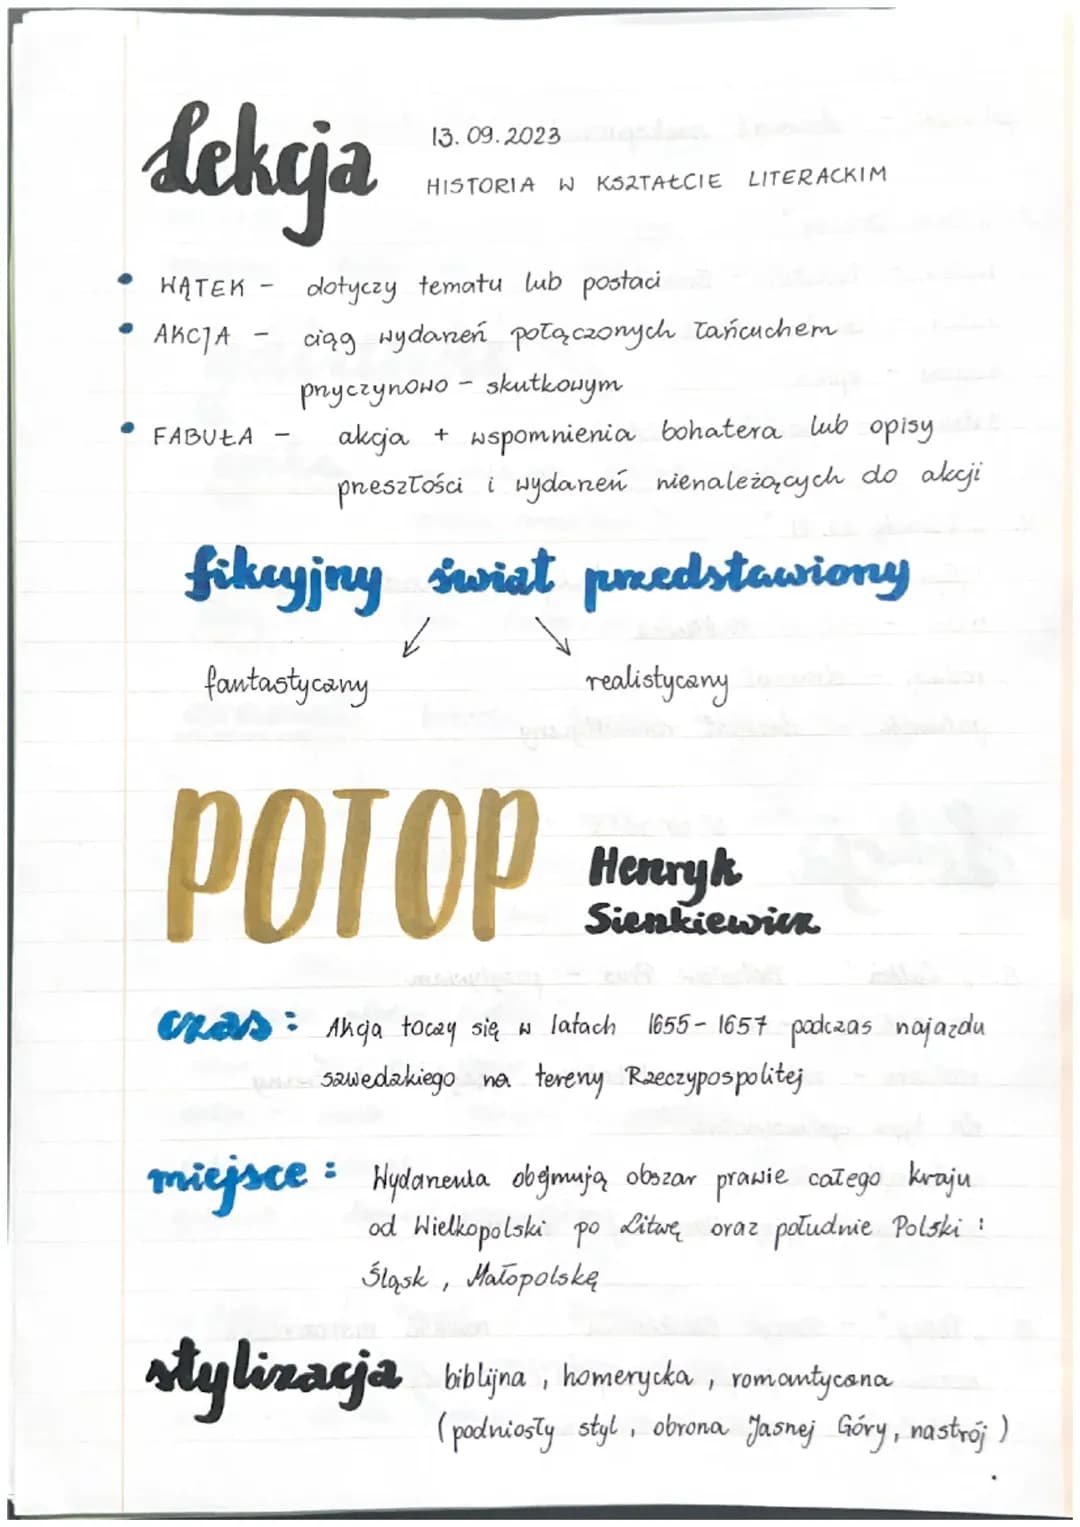 Lekcja
13.09.2023
HISTORIA W KSZTAŁCIE LITERACKIM
• WĄTEK - dotyczy tematu lub postaci
• AKCJA - ciąg wydarzeń połączonych łańcuchem
przyczynowo - skutkowym
• FABUŁA - akcja + wspomnienia bohatera lub opisy
przeszłości i wydarzeń nienależących do akcji
fikcyjny świat przedstawiony
fantastyczny realistyczny
POTOP
Henryk
Sienkiewicz
czas: Akcja toczy się w latach 1655-1657 podczas najazdu
szwedzkiego na tereny Rzeczypospolitej
miejsce: Wydarzenia obejmują obszar prawie całego kraju
od Wielkopolski po Litwę oraz południe Polski:
Śląsk, Małopolskę
stylizacja biblijna, homerycka, romantyczna
(podniosły styl, obrona Jasnej Góry, nastrój)